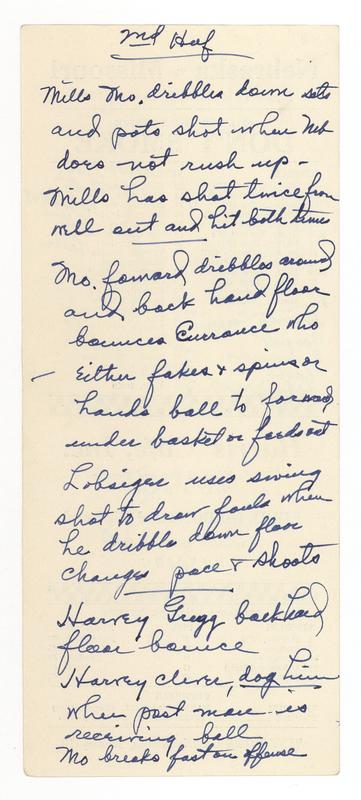 2nd Half
Mills Mo. dribbles down sets
and pots shot when Neb
does not rush up -
Mills has shot twice from
well out and hit both times
Mo. forward dribbles around
and back hand floor
bounces Currance who
- Either fakes & spins or
hands ball to forward
under basket or feeds out
Lobsiger uses swing
shot to draw fouls when
he dribbles down floor
changes pace & shoots
Harvey Gregg backhand
floor bounce
Harvey clever, dog him
when post man is
receiving ball
Mo breaks fast on offense